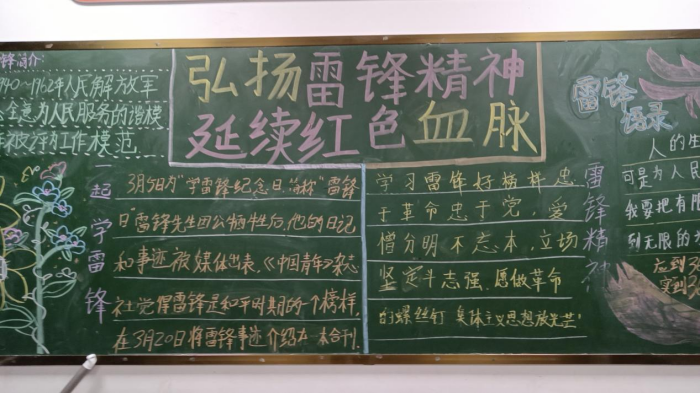 锋简介:
940~1962年人民解放军
全意为人民服务的楷模
工作模范
弘扬雷锋精神
延续红色血脉
一起学雷锋
3月5日为"学雷锋纪念日,简称"雷锋
日"雷锋先生因公牺牲后,他的日记
和事迹被媒体出表,《中国青年》杂志
社觉得雷锋是和平时期的一个榜样,
在3月20日将雷锋事迹介绍在 本合刊,
学习雷锋好榜样忠
于革命忠于党,爱
憎分明不忘本,立场
坚定斗志强.愿做革命
的螺丝钉 集体主义思想放光芒
雷锋精
雷锋语录
人的生
可是为人民
我要把有限
到无限的
应到3
实到3